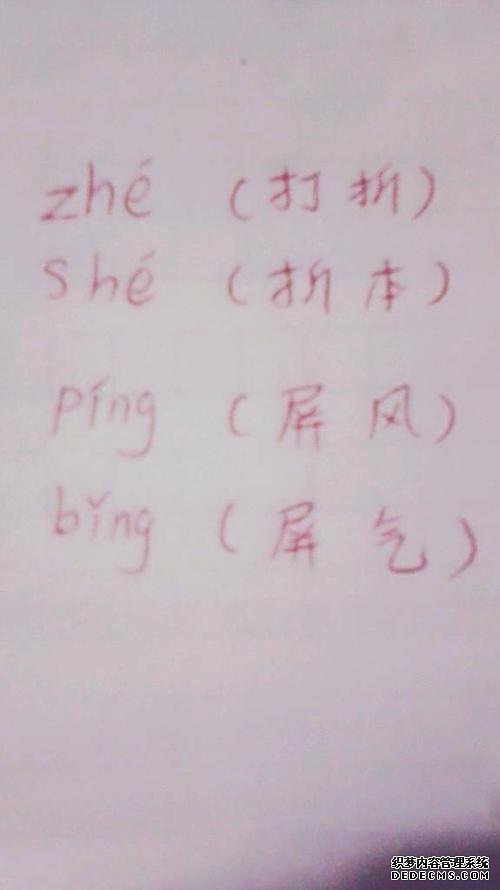 zhé (打折)
shé (折本)
píng (屏风)
bǐng (屏气)
织梦内容管理系统
DEDECMS.COM